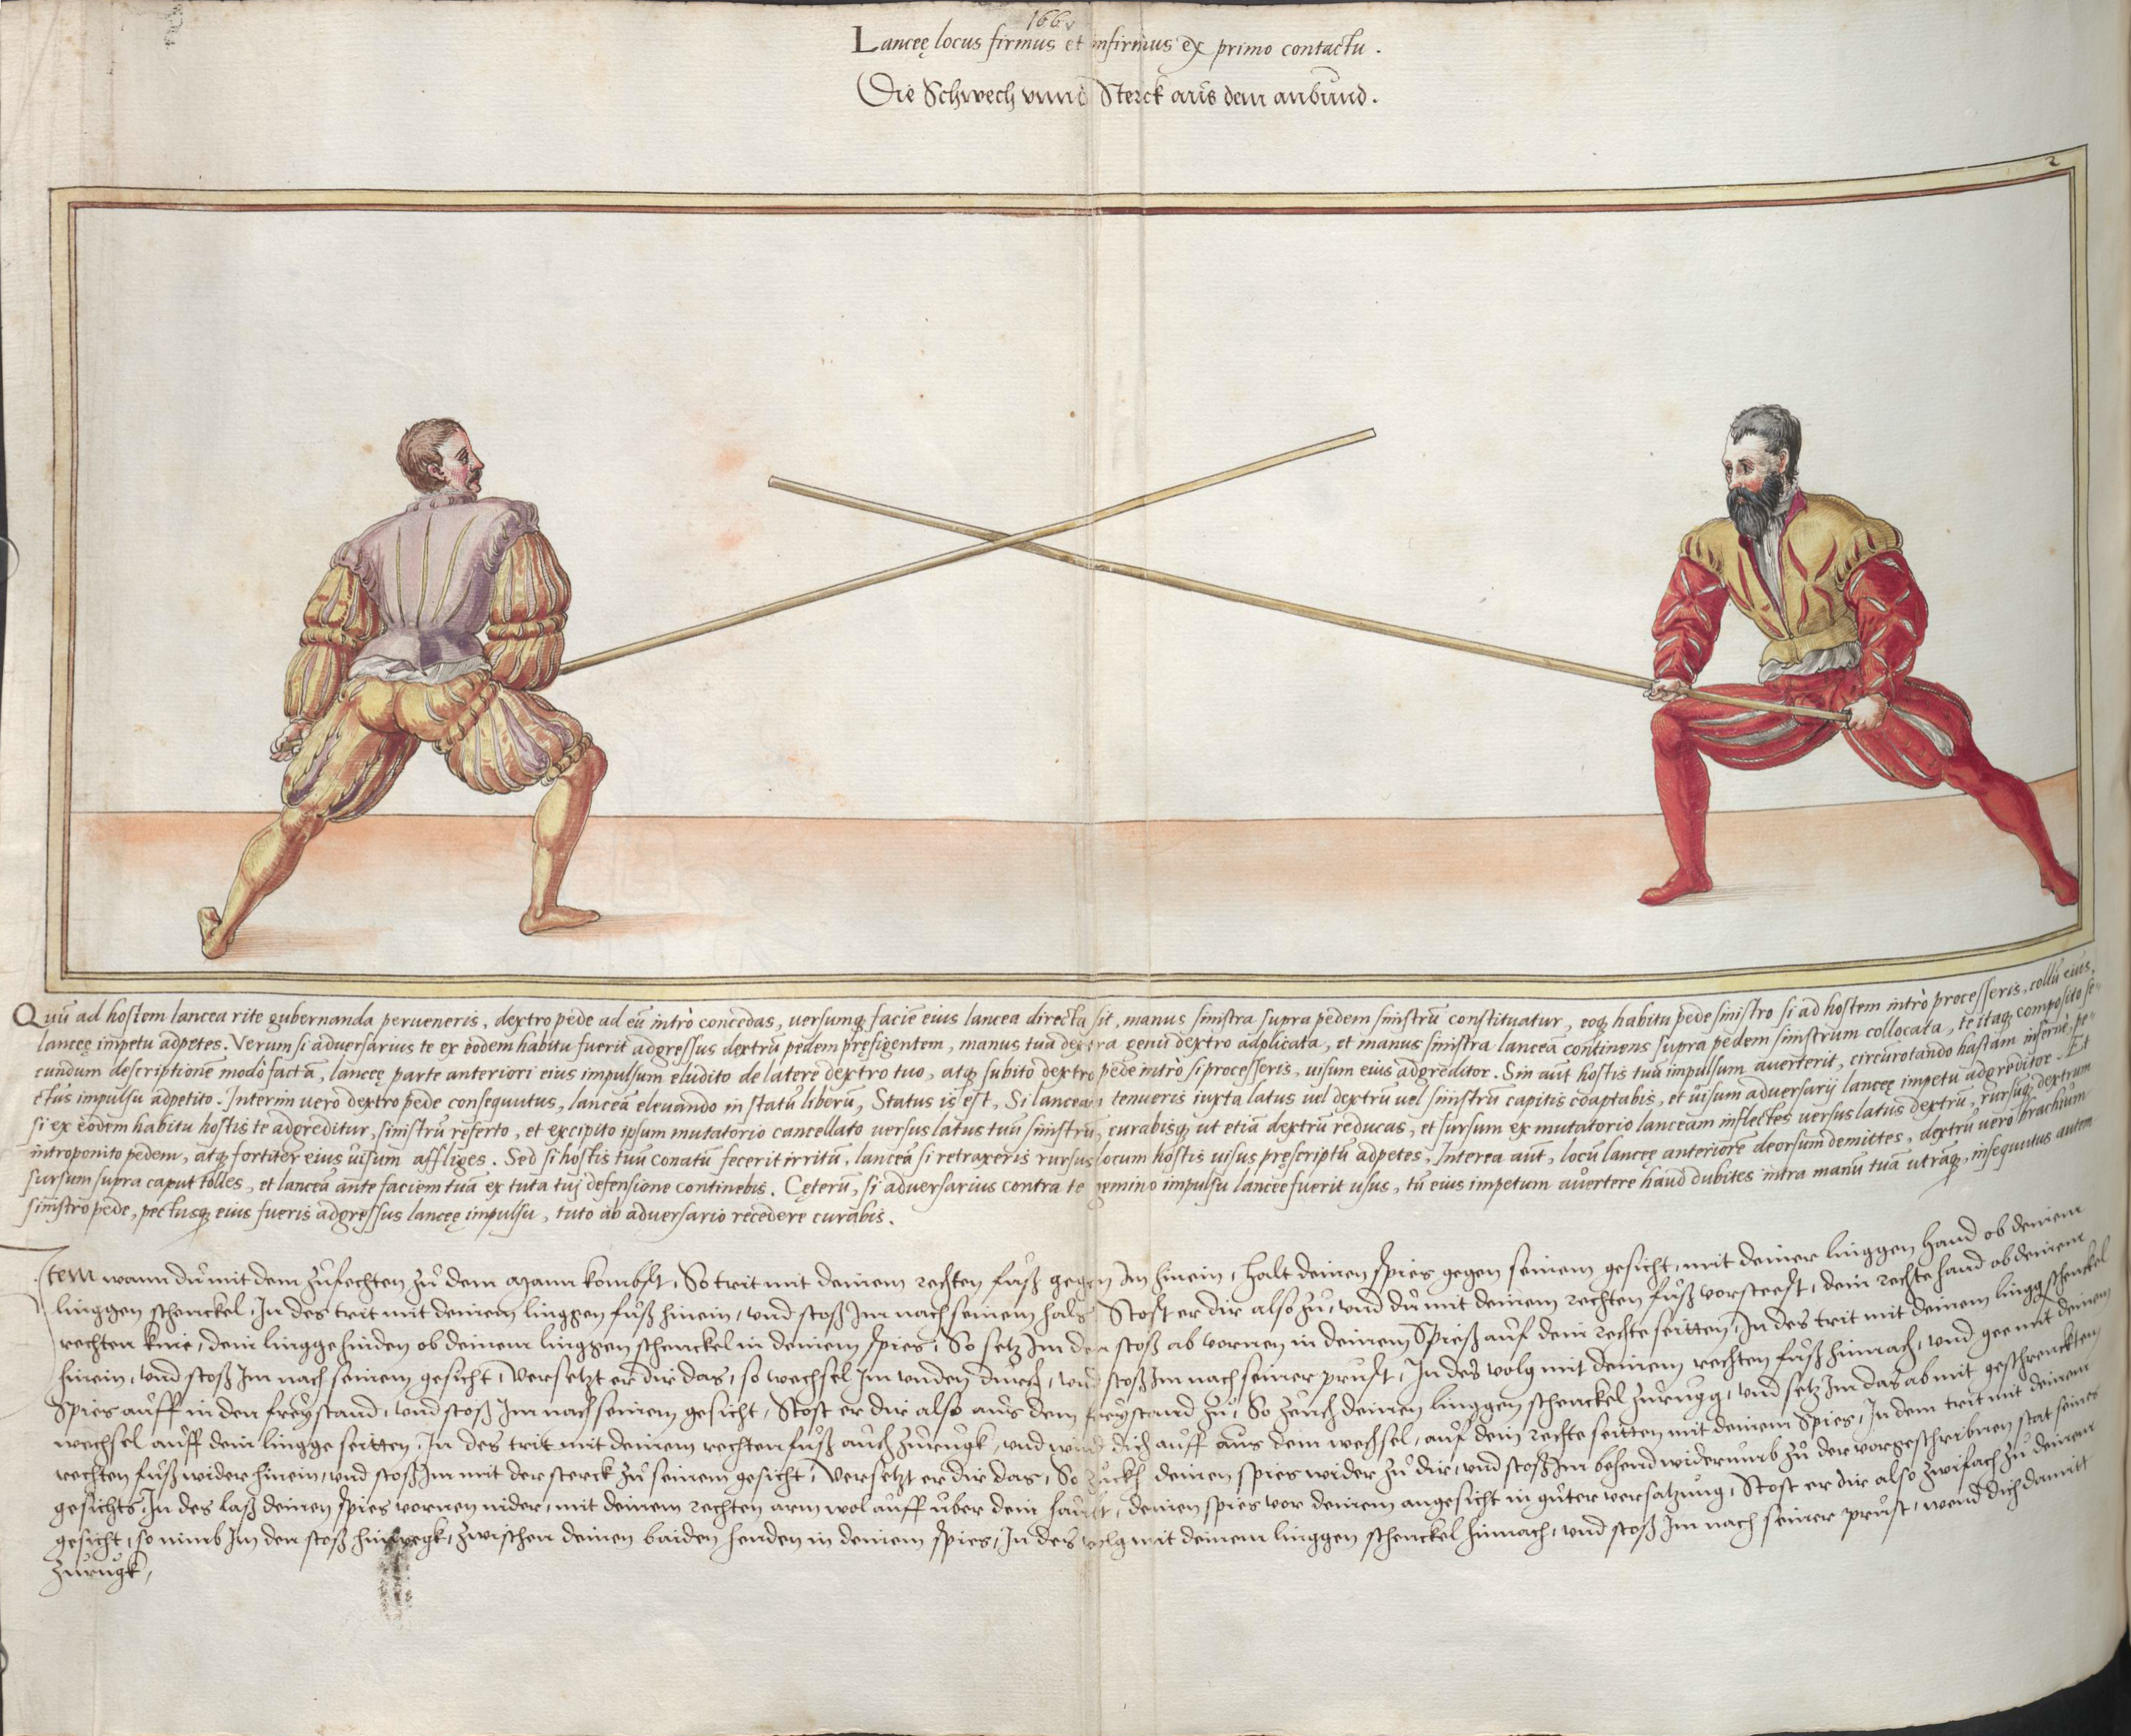 166v
Lanceę locus firmus et infirmus ex primo contactu.
Die Schwech vnnd Sterck aus dem anbund.
2
Quū ad hostem lancea rite gubernanda perueneris, dextro pede ad eū intrò concedas, uersumq; faciē eius lancea directa sit, manus sinistra supra pedem sinistrū constituatur, eoq; habitu pede sinistro si ad hostem intrò processeris, collū eius,
lanceę impetu adpetes. Verum si aduersarius te ex eodem habitu fuerit adgressus dextrū pedem pręfigentem, manus tua dextra genu dextro adplicata, et manus sinistra lanceā continens supra pedem sinistrum collocata, te itaq; composito se-
cundum descriptionē modò factā, lanceę parte anteriori eius impulsum eludito de latere dextro tuo, atq; subitò dextro pede intrò si processeris, uisum eius adgreditor. Sin aūt hostis tuū impulsum auerterit, circūrotando hastam infernè, pe-
ctus impulsu adpetito. Interim uero dextro pede consequutus, lanceā eleuando in statū liberū, Status is est, Si lanceam tenueris iuxta latus uel dextrū uel sinistrū capitis coaptabis, et uisum aduersarij lanceę impetu adgreditor. Et
si ex eodem habitu hostis te adgreditur, sinistrū referto, et excipito ipsum mutatorio cancellato uersus latus tuū sinistrū, curabisq; ut etiā dextrū reducas, et sursum ex mutatorio lanceam inflectes uersus latus dextrū, rursusq; dextrum
introponito pedem, atq; fortiter eius uisum affliges. Sed si hostis tuū conatū fecerit irritū, lanceā si retraxeris rursus locum hostis uisus pręscriptū adpetes, Interea aūt, locū lanceę anteriorē deorsum demittes, dextrū uero brachium
sursum supra caput tolles, et lanceā ante faciem tuā ex tuta tui defensione continebis. Cęterū, si aduersarius contra te gemino impulsu lanceę fuerit usus, tū eius impetum auertere haud dubites intra manū tuā utramq;, insequutus autem
sinistro pede, pectusq; eius fueris adgressus lanceę impulsu, tuto ab aduersario recedere curabis.
Item wann du mit dem zufechten zu dem mann kombst, So trit mit deinem rechten fuß gegen Im hinein, halt deinen spies gegen seinem gesicht, mit deiner linggen hand ob deinem
linggen schenckel, In des trit mit deinem linggen fuß hinein, vnd stoß Im nach seinem hals Stost er dir also zu, vnd du mit deinem rechten fuß vorsteest, dein rechte hand ob deinem
rechten knie, dein lingge hinden ob deinem linggen schenckel in deinem spies, So setz Im den stoß ab vornen in deinem Spieß auf dein rechte seitten, In des trit mit deinem lingg schenckel
hinein, vnd stoß Im nach seinem gesicht, Versetzt er dir das, so wechsel Im vnden durch, vnd stoß Im nach seiner prust, In des volg mit deinem rechten fuß hinnach, vnd gee mit deinem
Spies auff in den freystand, vnd stoß Im nach seinem gesicht, Stost er dir also aus dem freystand zu, So zeuch deinen linggen schenckel zurugg, vnd setz Im das ab mit geschrenckten
wechsel auff dein lingge seitten, In des trit mit deinem rechten fuß auch zurugk, vnd wind dich auff aus dem wechsel, auf dein rechte seitten mit deinem Spies, In dem trit mit deinem
rechten fuß wider hinein, vnd stoß Im mit der sterck zu seinem gesicht, Versetzt er dir das, So zuckh deinen spies wider zu dir, vnd stoß Im behend widerumb zu der vorgeschribnen stat seines
gesichts, In des laß deinen spies vornen nider, mit deinem rechten arm wol auff vber dein haubt, deinen spies vor deinem angesicht in guter versatzung, Stost er dir also zwifach zu deinem
gesicht, so nimb Im den stoß hinwegk, zwischen deinen baiden henden in deinem spies, In des volg mit deinem linggen schenckel hinnach, vnd stoß Im nach seiner prust, wend dich damit
zurugk,